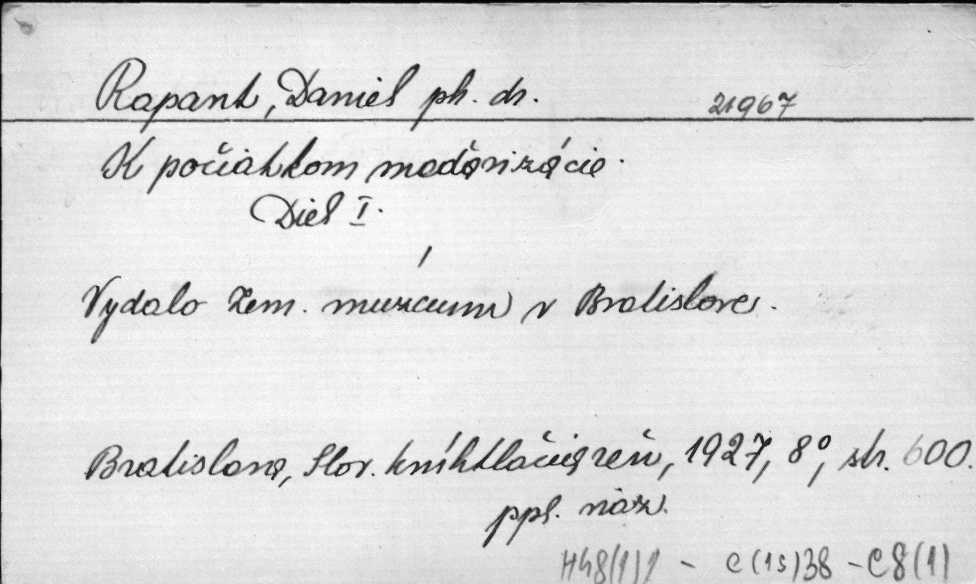 Rapant, Daniel ph. dr. 21967
K počiatkom maďarizácie.
Diel I.
Vydalo Zem. muzeum v Bratislave.
Bratislava, Slov. kníhtlačiareň, 1927, 8°, str. 600.
ppl. váz.
H48(1)1 - C(1s)38 - C8(1)